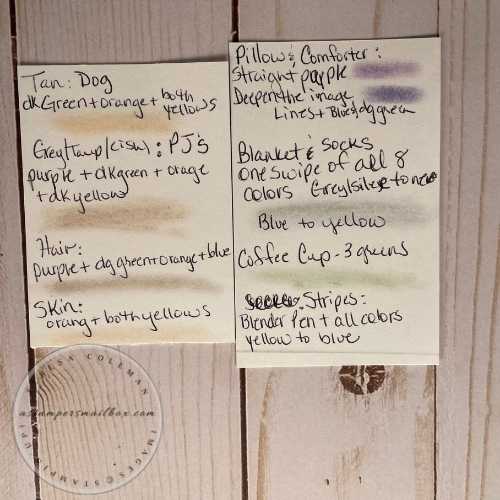 Tan: Dog
dkGreen + orange + both
yellows
Grey/Taup/(ish): PJ's
purple + dkgreen + orage
+ dk yellow
Hair:
purple + dg green + orange + blue
Skin:
orang + both yellows
Pillow & Comforter:
Straight purple
Deepen the image
Lines + Blues, dg green
Blanket & Socks
one swipe of all 8
colors Grey/silver to
Blue to yellow
Coffee Cup - 3 greens
Stripes:
Blender Pen + all colors
yellow to blue
ESA COLEMAN
astampersmailbox.com
IMAGES©STAMPIN' UP!